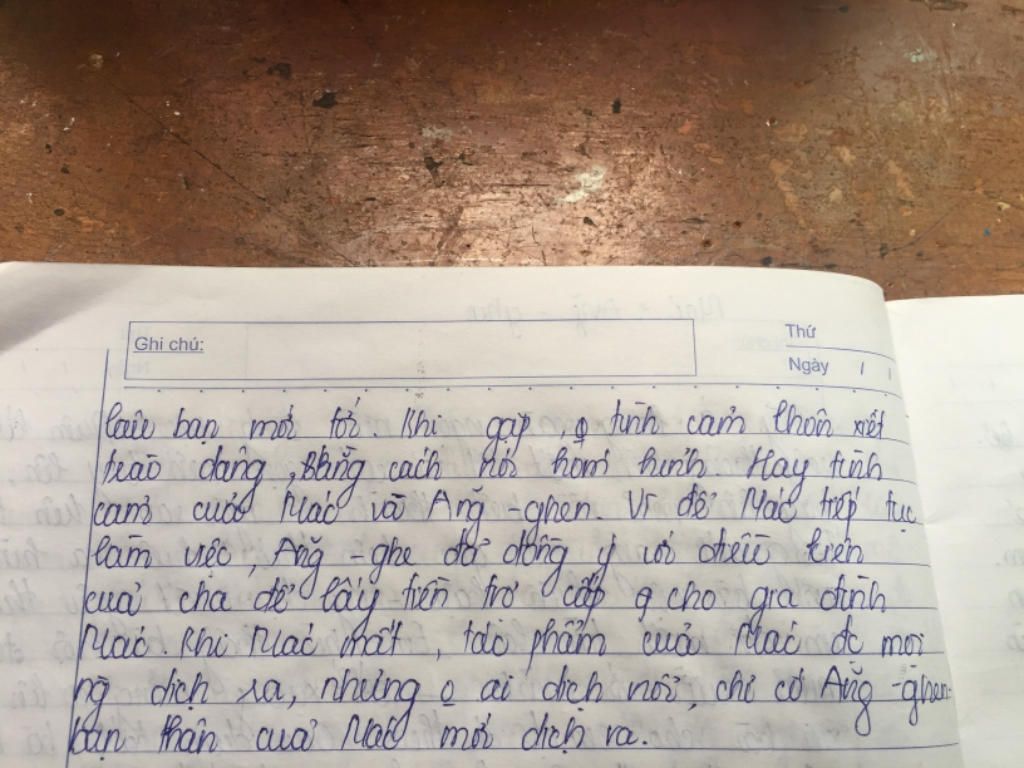 Ghi chú:
Thứ
Ngày / /
lâu bạn mới tới. Khi gặp, tình cảm khôn xiết
trào dâng, bằng cách nói hóm hỉnh. Hay tình
cảm cuả Mác và Ăng-ghen. Vì để Mác tiếp tục
làm việc, Ăng-ghe đã đồng ý với điều kiện
cuả cha để lấy tiền trợ cấp cho gia đình
Mác. Khi Mác mất, tác phẩm cuả Mác đc mọi
ng dịch ra, nhưng o ai dịch nổi, chỉ có Ăng-ghen-
bạn thân cuả Mác mới dịch ra.